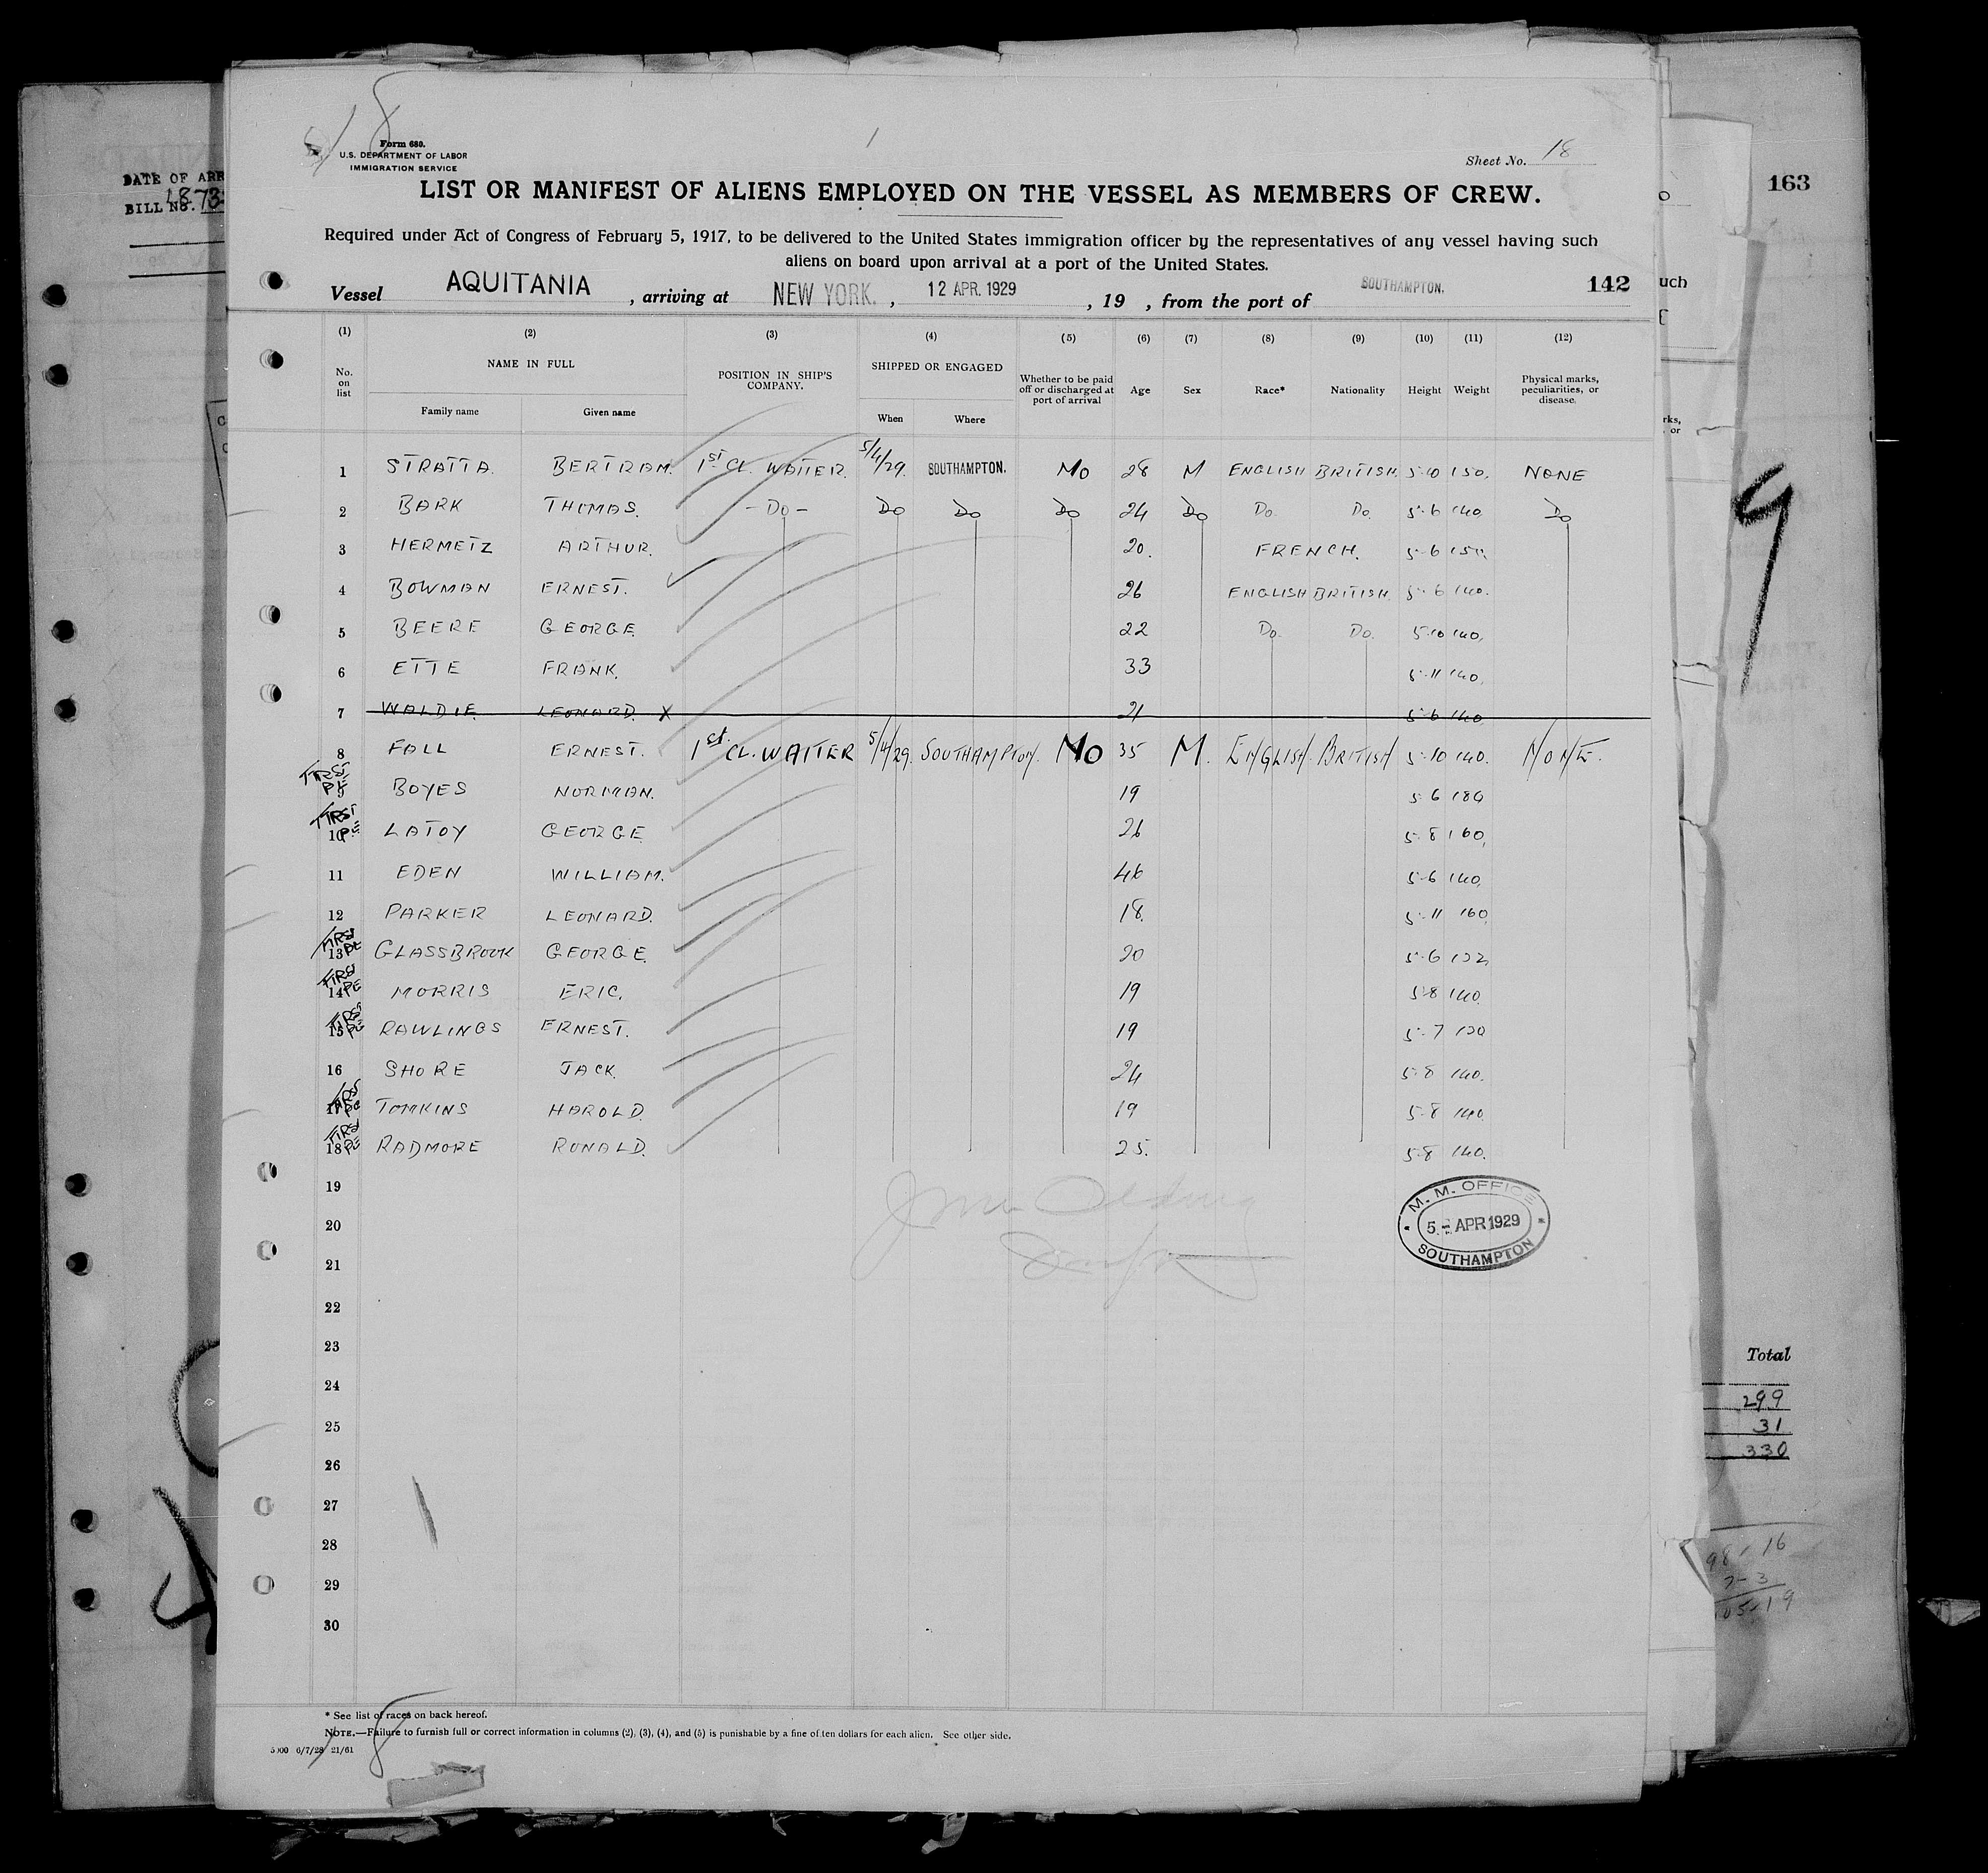 DATE OF ARR
BILL NO. 1873
163
Form 680.
U.S. DEPARTMENT OF LABOR
IMMIGRATION SERVICE
Sheet No. 18
LIST OR MANIFEST OF ALIENS EMPLOYED ON THE VESSEL AS MEMBERS OF CREW.
Required under Act of Congress of February 5, 1917, to be delivered to the United States immigration officer by the representatives of any vessel having such
aliens on board upon arrival at a port of the United States.
Vessel AQUITANIA, arriving at NEW YORK., 12 APR. 1929, 19 , from the port of SOUTHAMPTON. 142
(1) (2) (3) (4) (5) (6) (7) (8) (9) (10) (11) (12)
No. on list NAME IN FULL POSITION IN SHIP'S COMPANY. SHIPPED OR ENGAGED Whether to be paid off or discharged at port of arrival Age Sex Race* Nationality Height Weight Physical marks, peculiarities, or disease.
Family name Given name When Where
1 STRATTA. BERTRAM. 1ST CL. WAITER. 5/4/29. SOUTHAMPTON. NO 28 M ENGLISH BRITISH. 5-10 150. NONE
2 BARK THOMAS. -DO- DO DO DO 24 DO DO. DO. 5-6 140. DO
3 HERMETZ ARTHUR. 20. FRENCH. 5-6 150.
4 BOWMAN ERNEST. 26 ENGLISH BRITISH. 5-6 140.
5 BEERE GEORGE. 22 DO. DO. 5-10 140.
6 ETTE FRANK. 33 5-11 140.
7 WALDIE. LEONARD. X 21 5-6 140
8 FALL ERNEST. 1st. CL. WAITER 5/4/29. SOUTHAMPTON. NO 35 M. ENGLISH. BRITISH 5-10 140. NONE.
BOYES NORMAN. 19 5-6 180
10 LATOY GEORGE 26 5-8 160.
11 EDEN WILLIAM. 46 5-6 140.
12 PARKER LEONARD. 18. 5-11 160.
13 GLASSBROOK GEORGE. 20 5-6
14 MORRIS ERIC. 19 5-8 140.
15 RAWLINGS ERNEST. 19 5-7
16 SHORE JACK. 24 5-8 140.
17 TOMKINS HAROLD. 19 5-8 140.
18 RADMORE RONALD. 25. 5-8 140.
19
20
21
22
23
24
25
26
27
28
29
30
M. M. OFFICE
5 - APR 1929
SOUTHAMPTON
Total
299
31
330
* See list of races on back hereof.
NOTE.—Failure to furnish full or correct information in columns (2), (3), (4), and (5) is punishable by a fine of ten dollars for each alien. See other side.
5000 6/7/28 21/61